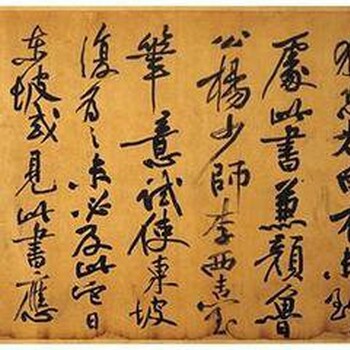 恐太白有未到
處此書兼顏魯
公楊少師李西臺
筆意試使東坡
復為之未必及此它日
東坡或見此書應